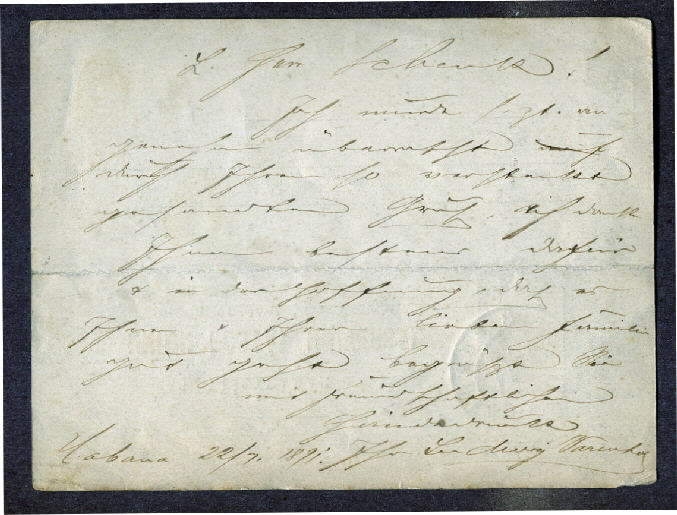 L. Herr Schenk!
Ich wurde sgt. an-
genehm überrascht
durch Ihren so versteckt
gesandten Gruß, ich danke
Ihnen bestens dafür
& in der Hoffnung, daß es
Ihnen & Ihrer lieben Familie
gut geht begrüßt Sie
mit freundschaftlichem
Händedruck
Habana 22/7. 1891. Ihr Ludwig